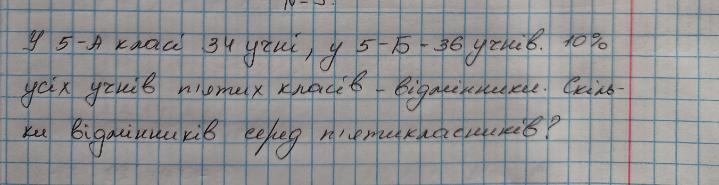 У 5-А класі 34 учні, у 5-Б - 36 учнів. 10%
усіх учнів п'ятих класів - відмінники. Скіль-
ки відмінників серед п'ятикласників?